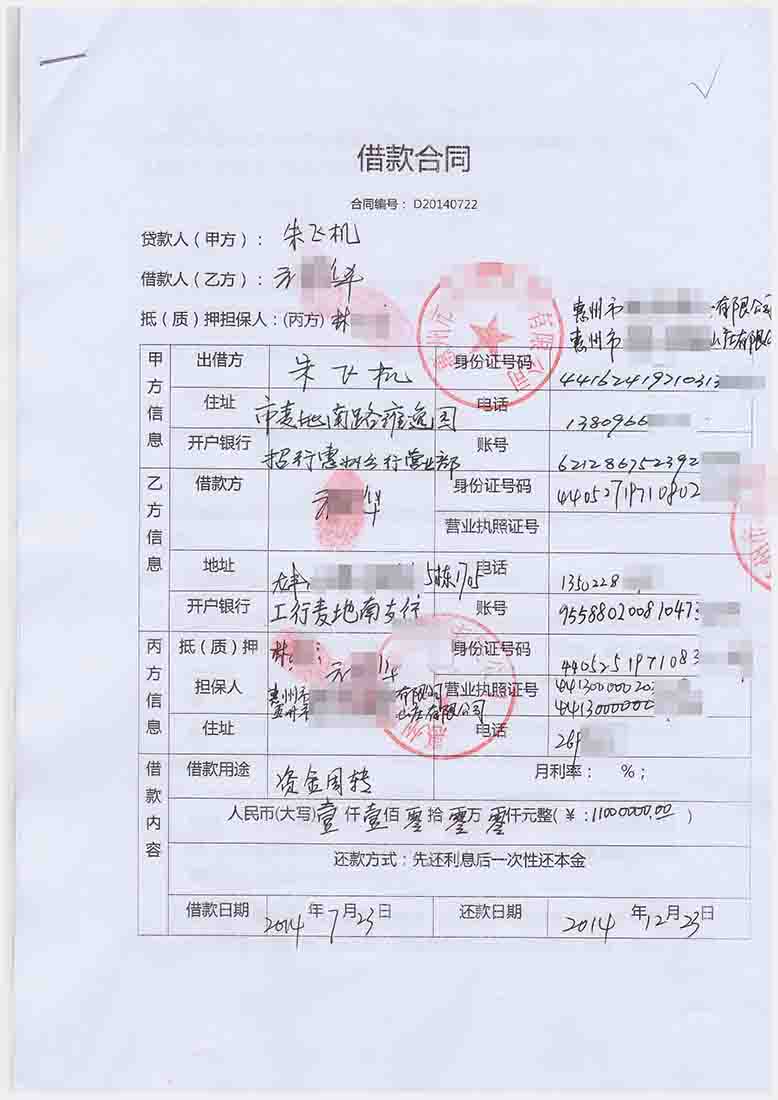 借款合同
合同编号： D20140722
贷款人（甲方）： 朱飞机
借款人（乙方）： 方 华
抵（质）押担保人：(丙方) 林
惠州市 有限公司
惠州市 山庄有限公
甲方信息
出借方 朱飞机 身份证号码 44162419710313
住址 市麦地南路雍逸园 电话 1380966
开户银行 招行惠州分行营业部 账号 621286752392
乙方信息
借款方 方 华 身份证号码 44052719710802
营业执照证号
地址 5栋1705 电话 1350228
开户银行 工行麦地南支行 账号 95588020081047
丙方信息
抵（质）押担保人 林 方 华 身份证号码 4405251971083
惠州市 有限公司 营业执照证号 44130000020
山庄有限公司 4413000000
住址 电话 269
借款内容
借款用途 资金周转 月利率： %；
人民币(大写) 壹仟壹佰零拾零万零仟元整(￥:11000000.00 )
还款方式：先还利息后一次性还本金
借款日期 2014年7月23日 还款日期 2014年12月23日